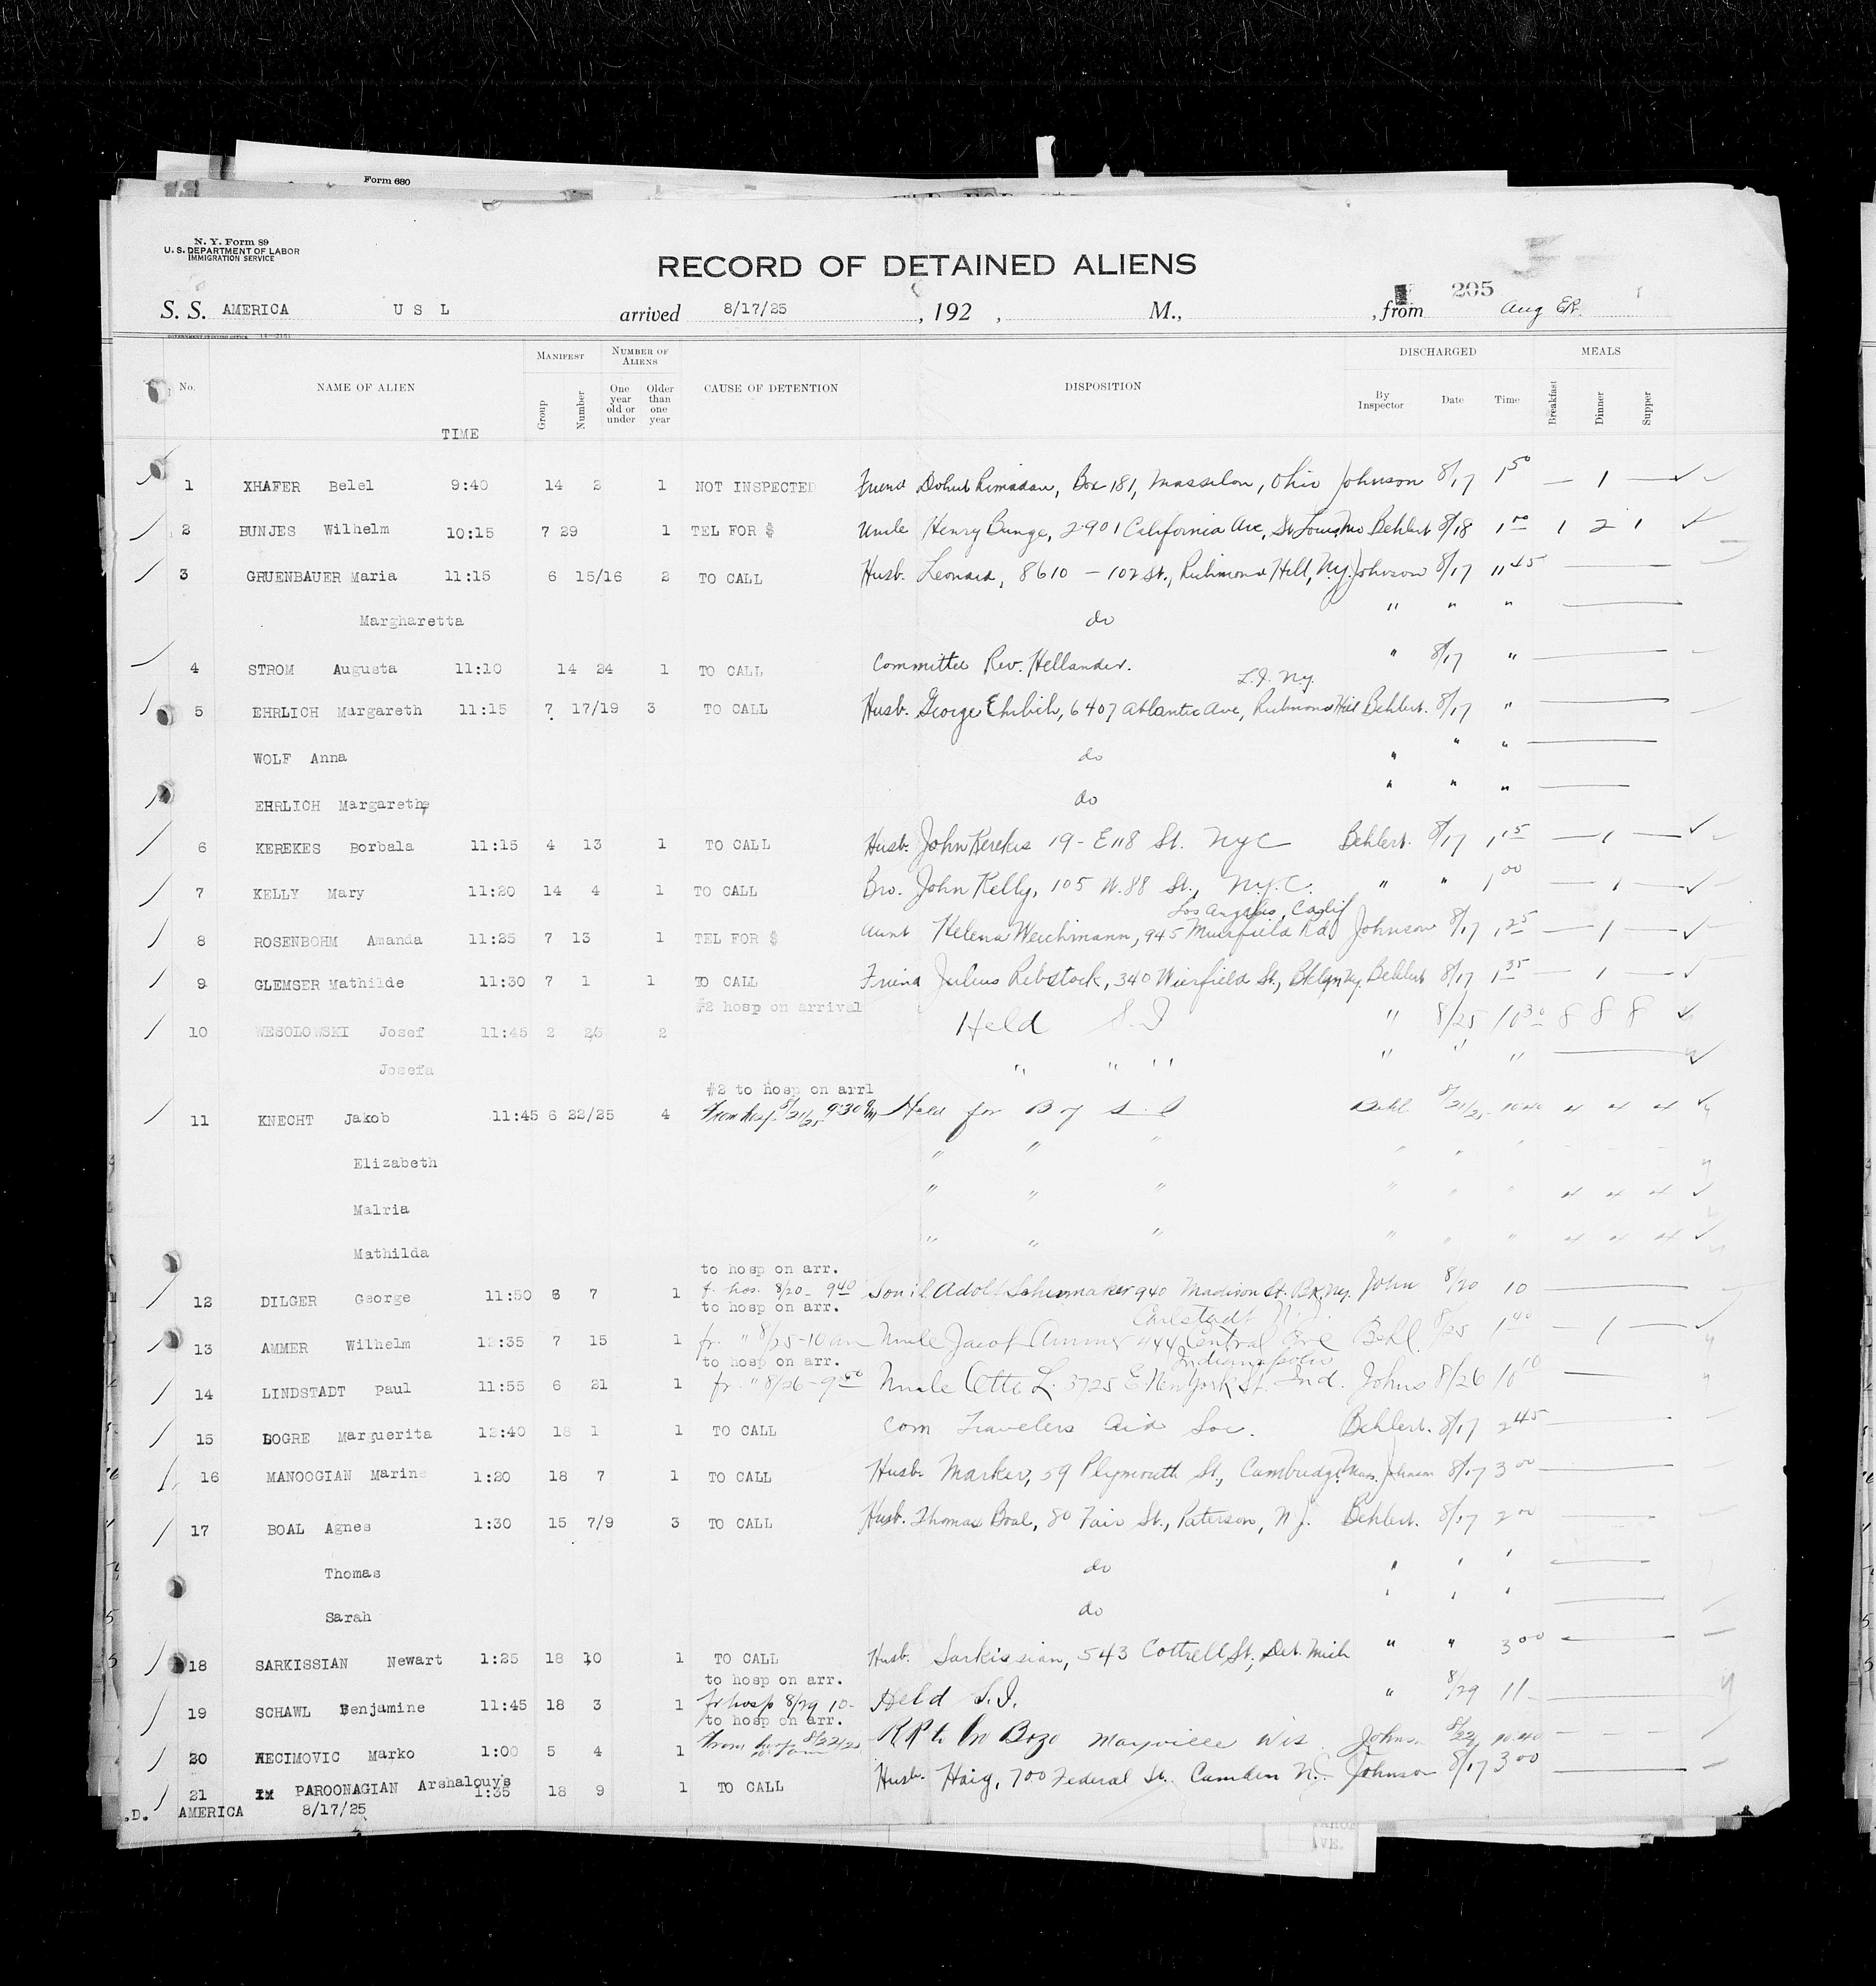 Form 680
N. Y. Form 89
U. S. DEPARTMENT OF LABOR
IMMIGRATION SERVICE
RECORD OF DETAINED ALIENS
205
S. S. AMERICA U S L arrived 8/17/25 , 192 , M., , from Aug
No. NAME OF ALIEN TIME MANIFEST Group Number NUMBER OF ALIENS One year old or under Older than one year CAUSE OF DETENTION DISPOSITION DISCHARGED By Inspector Date Time MEALS Breakfast Dinner Supper
1 XHAFER Belel 9:40 14 2 1 NOT INSPECTED Friend Rimadan, Box 181, Massilon, Ohio Johnson 8/17 1 50 — 1 —
2 BUNJES Wilhelm 10:15 7 29 1 TEL FOR $ Uncle Henry Bunge, 2901 California Ave, St Louis, Mo Behlert 8/18 1 00 1 2 1
3 GRUENBAUER Maria 11:15 6 15/16 2 TO CALL Husb. Leonard, 8610 — 102 St., Richmond Hill, N.Y. Johnson 8/17 11 45 —
Margharetta do " " " —
4 STROM Augusta 11:10 14 24 1 TO CALL Committee Rev. Hellander. " 8/17 " —
L.I. N.Y.
5 EHRLICH Margareth 11:15 7 17/19 3 TO CALL Husb. George Ehrlich, 6407 Atlantic Ave, Richmond Hill Behlert. 8/17 " —
WOLF Anna do " " " —
EHRLICH Margarethe do " " " —
6 KEREKES Borbala 11:15 4 13 1 TO CALL Husb. John Kerekes 19 - E 118 St. NYC Behlert. 8/17 1 15 — 1 —
7 KELLY Mary 11:20 14 4 1 TO CALL Bro. John Kelly, 105 W. 88 St., N.Y.C. " " 1 00 — 1 —
Los Angeles, Calif
8 ROSENBOHM Amanda 11:25 7 13 1 TEL FOR $ Aunt Helena Weichmann, 945 Muirfield Rd Johnson 8/17 1 25 — 1 —
9 GLEMSER Mathilde 11:30 7 1 1 TO CALL Friend Julius Rebstock, 340 Weirfield St., Bklyn N.Y. Behlert 8/17 1 35 — 1 —
#2 hosp on arrival
10 WESOLOWSKI Josef 11:45 2 25 2 Held S.I " 8/25 10 30 8 8 8
Josefa " " " " " " —
#2 to hosp on arrl
11 KNECHT Jakob 11:45 6 22/25 4 From hosp. 8/21/25 9:30 am Held for B of S I Behl 8/21/25 10 40 4 4 4
Elizabeth " " " " " "
Malria " " " " " " 4 4 4
Mathilda " " " " " " 4 4 4
to hosp on arr.
12 DILGER George 11:50 6 7 1 f. hos. 8/20 - 9 40 Adolf Schumaker 940 Madison St. Bk. N.Y. John 8/20 10 —
to hosp on arr. N.J.
13 AMMER Wilhelm 12:35 7 15 1 fr. " 8/25 - 10 am Uncle Jacob Ammer 444 Central Ave Behl. 8/25 1 40 — 1 —
to hosp on arr. Indianapolis
14 LINDSTADT Paul 11:55 6 21 1 fr. " 8/26 - 9 50 Uncle Otto L. 3725 E. New York St. Ind. Johns 8/26 10 10 —
15 LOGRE Marguerita 12:40 18 1 1 TO CALL Com Travelers Aid Soc. Behlert. 8/17 2 45 —
16 MANOOGIAN Marine 1:20 18 7 1 TO CALL Husb. Marker, 59 Plymouth St., Cambridge, Mass. Johnson 8/17 3 00 —
17 BOAL Agnes 1:30 15 7/9 3 TO CALL Husb. Thomas Boal, 80 Fair St., Paterson, N.J. Behlert. 8/17 2 00 —
Thomas do " " " —
Sarah do " " " —
18 SARKISSIAN Newart 1:25 18 10 1 TO CALL Husb. Sarkissian, 543 Cottrell St., Det. Mich " " 3 00 —
to hosp on arr.
19 SCHAWL Benjamine 11:45 18 3 1 fr hosp 8/29 10 - Held S.I. " 8/29 11 - —
to hosp on arr.
20 HECIMOVIC Marko 1:00 5 4 1 From hosp 8/22/25 Bozo Mayville Wis. Johns. 8/22 10 40 — — —
21 PAROONAGIAN Arshalouys 1:35 18 9 1 TO CALL Husb. Haig, 700 Federal St. Camden N.J. Johnson 8/17 3 00 —
.D. AMERICA 8/17/25